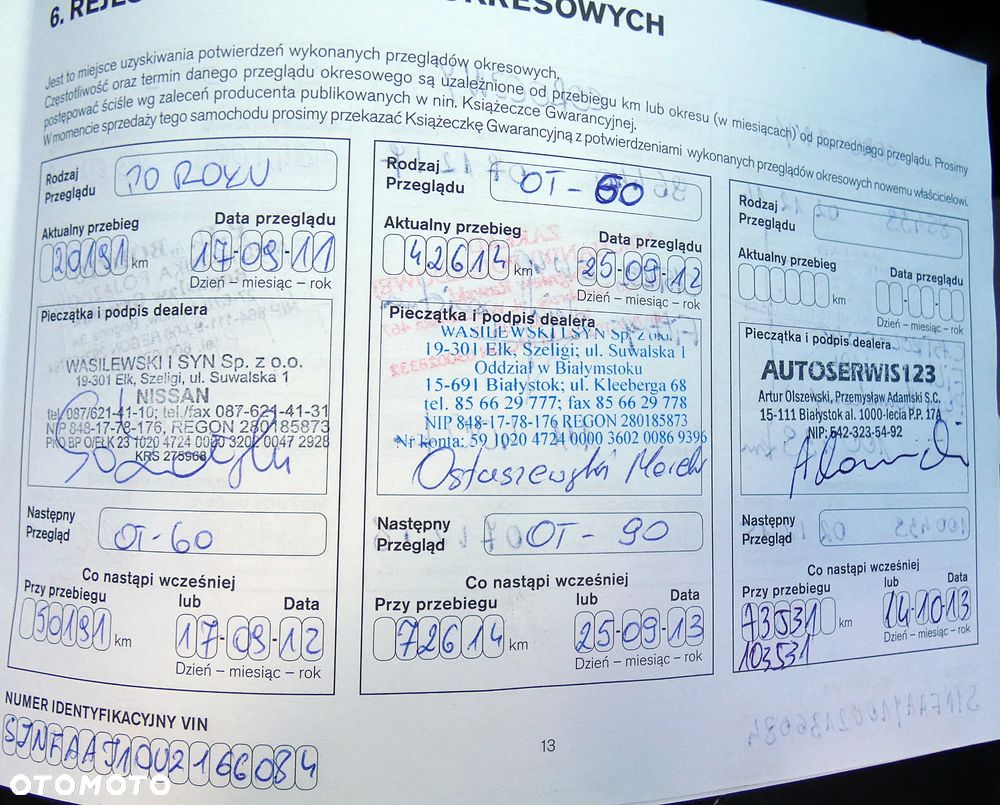 6. REJES OKRESOWYCH
Jest to miejsce uzyskiwania potwierdzeń wykonanych przeglądów okresowych.
Częstotliwość oraz termin danego przeglądu okresowego są uzależnione od przebiegu km lub okresu (w miesiącach) od poprzedniego przeglądu. Prosimy
postępować ściśle wg zaleceń producenta publikowanych w nin. Książeczce Gwarancyjnej.
W momencie sprzedaży tego samochodu prosimy przekazać Książeczkę Gwarancyjną z potwierdzeniami wykonanych przeglądów okresowych nowemu właścicielowi.
Rodzaj
Przeglądu
PO ROKU
Aktualny przebieg
Data przeglądu
20191 km
17-09-11
Dzień – miesiąc – rok
Pieczątka i podpis dealera
WASILEWSKI I SYN Sp. z o.o.
19-301 Ełk, Szeligi, ul. Suwalska 1
NISSAN
tel. 087/621-41-10; tel./fax 087-621-41-31
NIP 848-17-78-176, REGON 280185873
PKO BP O/EŁK 23 1020 4724 0000 3202 0047 2928
KRS 275968
Następny
Przegląd
OT-60
Co nastąpi wcześniej
Przy przebiegu
lub
Data
50191 km
17-09-12
Dzień – miesiąc – rok
Rodzaj
Przeglądu
OT-60
Aktualny przebieg
Data przeglądu
42614 km
25-09-12
Dzień – miesiąc – rok
Pieczątka i podpis dealera
WASILEWSKI I SYN Sp. z o.o.
19-301 Ełk, Szeligi; ul. Suwalska 1
Oddział w Białymstoku
15-691 Białystok; ul. Kleeberga 68
tel. 85 66 29 777; fax 85 66 29 778
NIP 848-17-78-176 REGON 280185873
Nr konta: 59 1020 4724 0000 3602 0086 9396
Ostaszewski Marek
Następny
Przegląd
OT-90
Co nastąpi wcześniej
Przy przebiegu
lub
Data
72614 km
25-09-13
Dzień – miesiąc – rok
Rodzaj
Przeglądu
Aktualny przebieg
Data przeglądu
km
Dzień – miesiąc – rok
Pieczątka i podpis dealera
AUTOSERWIS123
Artur Olszewski, Przemysław Adamski S.C.
15-111 Białystok al. 1000-lecia P.P. 17A
NIP: 542-323-54-92
Następny
Przegląd
Co nastąpi wcześniej
Przy przebiegu
lub
Data
73531 km
14-10-13
103531
Dzień – miesiąc – rok
NUMER IDENTYFIKACYJNY VIN
SJNFAAJ10U2166084
13
OTOMOTO